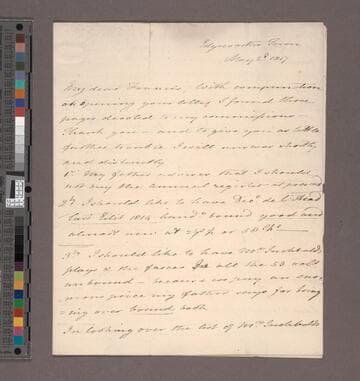 Edgeworths Town
May 2d 1817
My dear Francis, With compunction
on opening your letter I found three
pages devoted to my commissions —
Thank you — and to give you as little
further trouble I will answer shortly
and distinctly
1st My father advises that I should
not buy the annual register at present
2d I should like to have
last Edit 1814 hand bound good and
almost new at
3d I should like to have Mrs Inchbald's
plays & the farces all the 23 vols
unbound — because
more price my father says for being
=ing over bound both
In looking over the list of Mrs Inchbald's